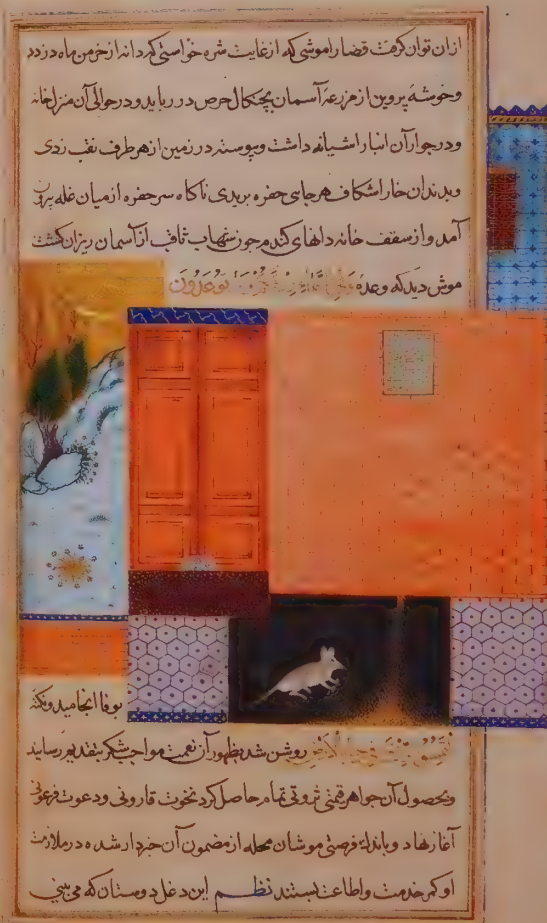 ازان توان کرفت قضارا موشی که از غایت شره خواستی که دانه از خرمن ماه دزدد
و خوشه پروین از مزرعه آسمان بچنکال حرص در رباید و در حوالی آن منزل خانه
و در جوار آن انبار اشیانه داشت و پیوسته در زمین از هر طرف نقب زدی
و بدندان خارا شکاف هر جای حفره بریدی ناکاه سر حفره از میان غله بیرون
آمد و از سقف خانه دانهای کندم جون شهاب ثاقب از آسمان ریزان کشت
موش دید که وعده توعدون
بوفا انجامید و نکته
روشن شد بظهور آن نعمت مواجب شکر بتقدیم رسانید
و بحصول آن جواهر قیمتی ثروتی تمام حاصل کرد نخوت قارونی و دعوت فرعونی
آغاز نهاد و باندک فرصتی موشان محله از مضمون آن خبردار شده در ملازمت
او کمر خدمت و اطاعت بستند نظم این دغل دوستان که می بینی